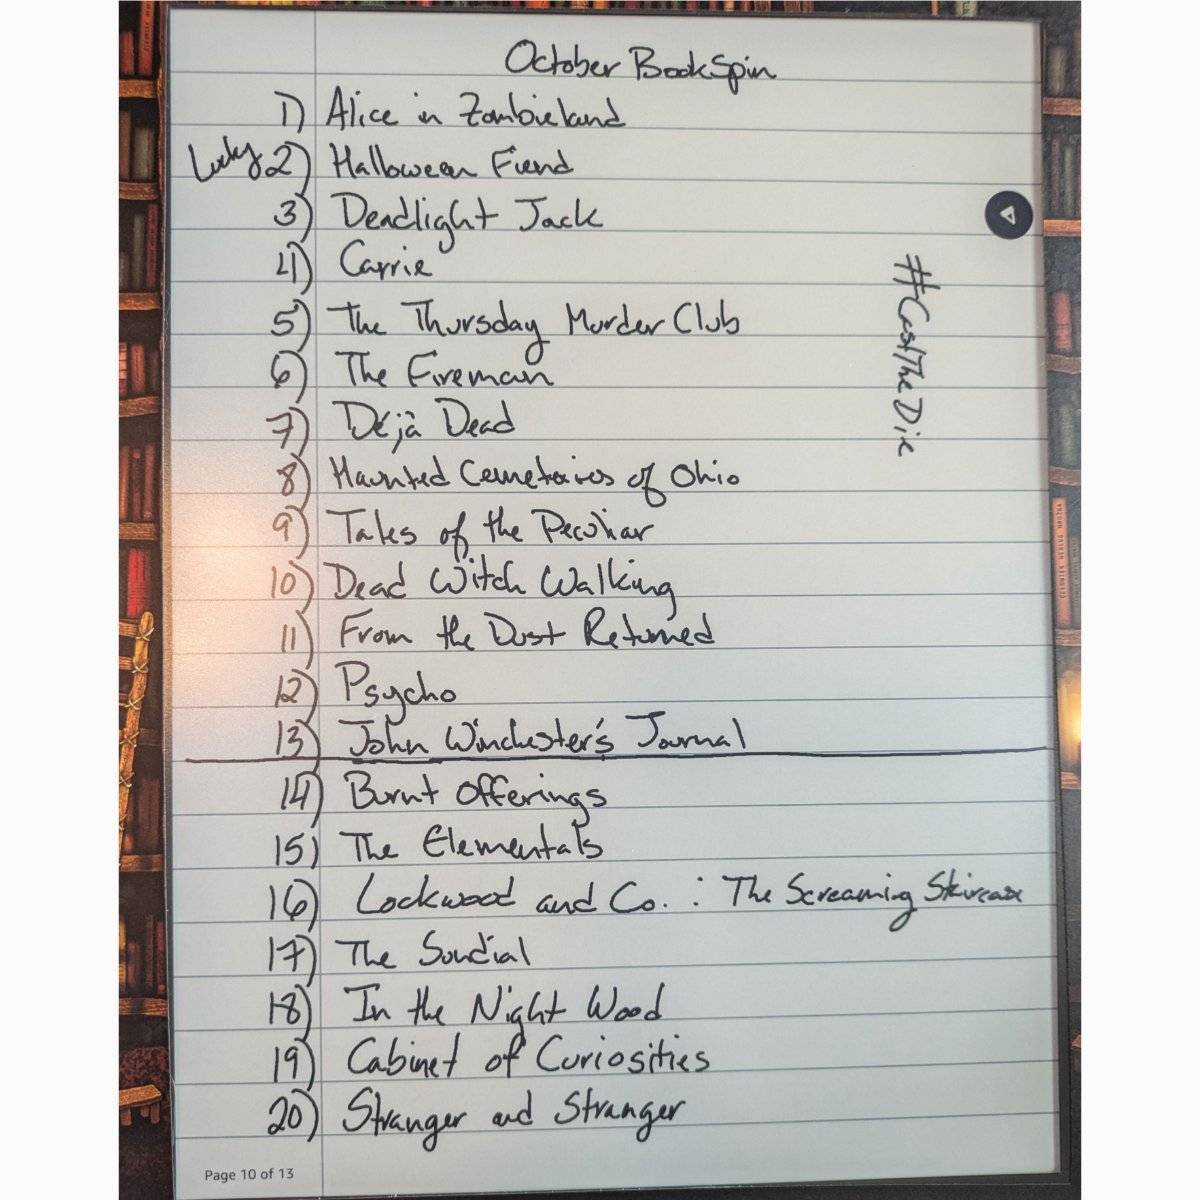 October BookSpin
1) Alice in Zombieland
Lucky 2) Halloween Fiend
3) Deadlight Jack
4) Carrie
#CastTheDie
5) The Thursday Murder Club
6) The Fireman
7) Déjà Dead
8) Haunted Cemetaires of Ohio
9) Tales of the Peculiar
10) Dead Witch Walking
11) From the Dust Returned
12) Psycho
13) John Winchester's Journal
14) Burnt Offerings
15) The Elementals
16) Lockwood and Co. : The Screaming Staircase
17) The Sundial
18) In the Night Wood
19) Cabinet of Curiosities
20) Stranger and Stranger
Page 10 of 13